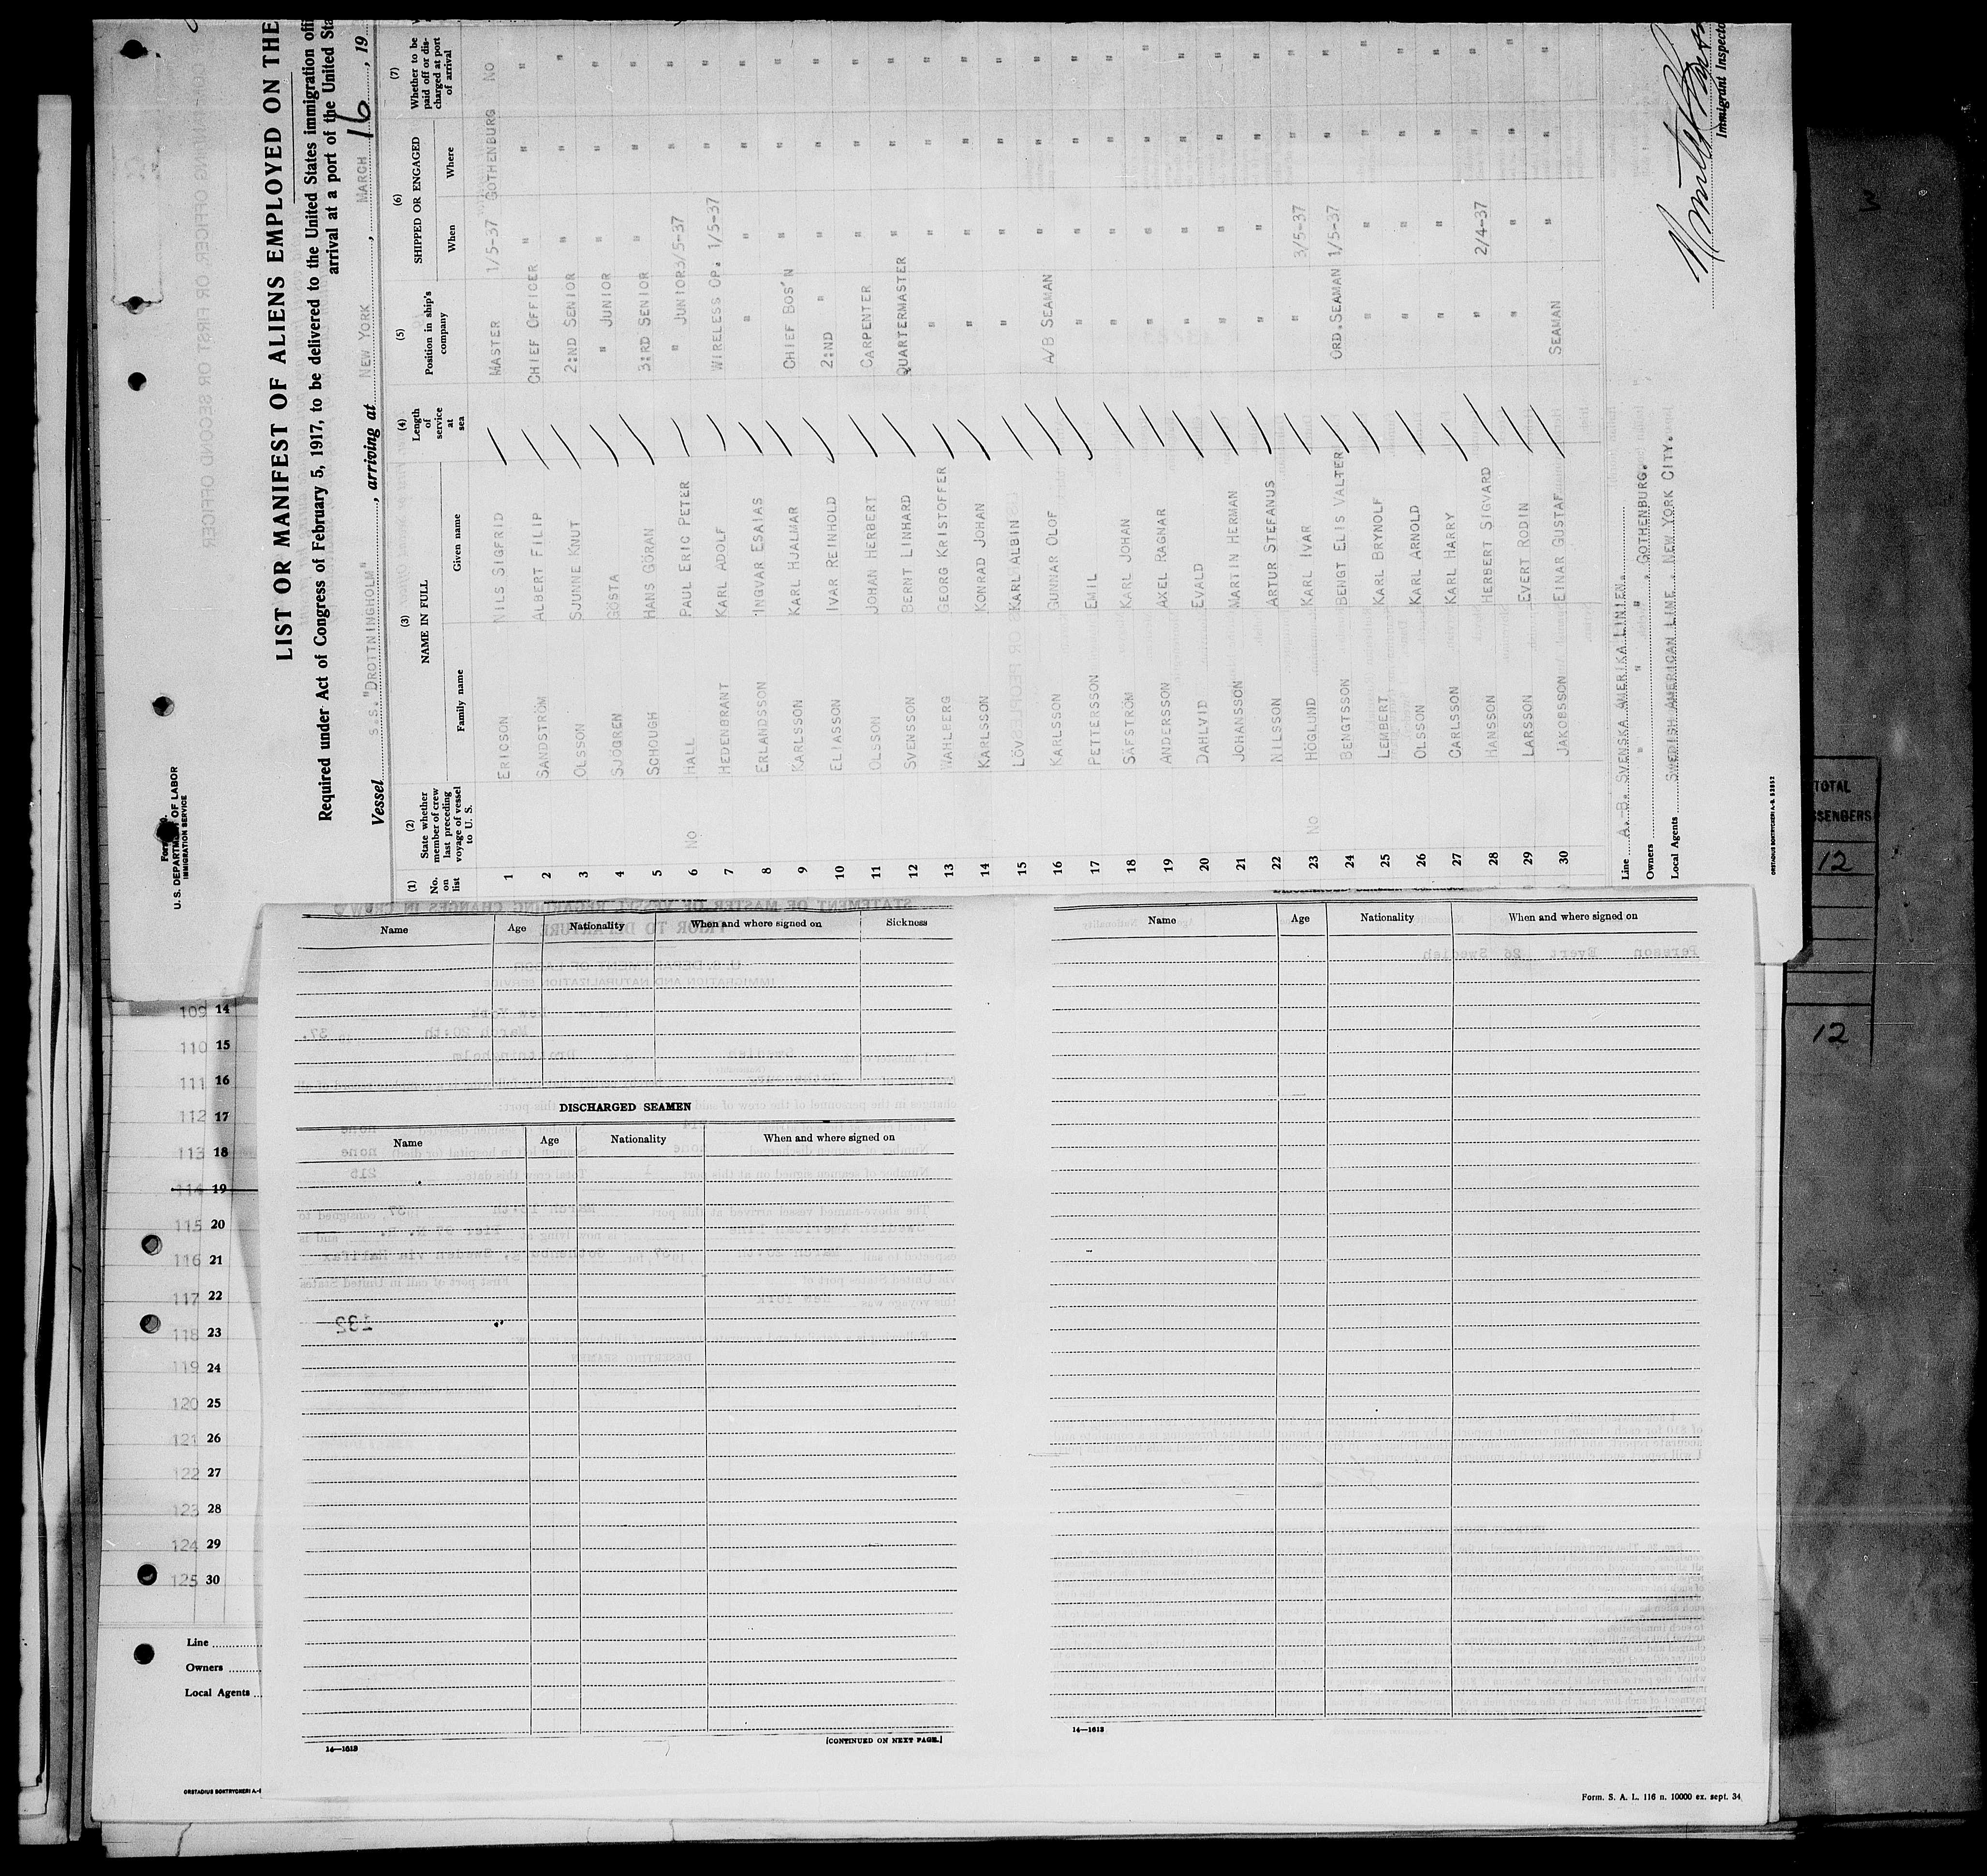 Form
U. S. DEPARTMENT OF LABOR
IMMIGRATION SERVICE
LIST OR MANIFEST OF ALIENS EMPLOYED ON THE
Required under Act of Congress of February 5, 1917, to be delivered to the United States immigration offi
arrival at a port of the United Sta
Vessel S.S. "DROTTNINGHOLM" , arriving at NEW YORK , MARCH 16 , 19
(1) (2) (3) (4) (5) (6) (7)
No. on list
State whether member of crew last preceding voyage of vessel to U. S.
NAME IN FULL
Family name Given name
Length of service at sea
Position in ship's company
SHIPPED OR ENGAGED
When Where
Whether to be paid off or discharged at port of arrival
1 ERICSON NILS SIGFRID MASTER 1/5-37 GOTHENBURG NO
2 SANDSTRÖM ALBERT FILIP CHIEF OFFICER " " "
3 OLSSON SJUNNE KNUT 2:ND SENIOR " " "
4 SJÖGREN GÖSTA " JUNIOR " " "
5 SCHOUGH HANS GÖRAN 3:RD SENIOR " " "
6 NO HALL PAUL ERIC PETER " JUNIOR 3/5-37 " "
7 HEDENBRANT KARL ADOLF WIRELESS OP. 1/5-37 " "
8 ERLANDSSON INGVAR ESAIAS " " " "
9 KARLSSON KARL HJALMAR CHIEF BOS'N " " "
10 ELIASSON IVAR REINHOLD 2:ND " " " "
11 OLSSON JOHAN HERBERT CARPENTER " " "
12 SVENSSON BERNT LINHARD QUARTERMASTER " " "
13 WAHLBERG GEORG KRISTOFFER " " " "
14 KARLSSON KONRAD JOHAN " " " "
15 LÖV KARL ALBIN " " " "
16 KARLSSON GUNNAR OLOF A/B SEAMAN " " "
17 PETTERSSON EMIL " " " "
18 SÄFSTRÖM KARL JOHAN " " " "
19 ANDERSSON AXEL RAGNAR " " " "
20 DAHLVID EVALD " " " "
21 JOHANSSON MARTIN HERMAN " " " "
22 NILSSON ARTUR STEFANUS " " " "
23 NO HÖGLUND KARL IVAR " 3/5-37 " "
24 BENGTSSON BENGT ELIS VALTER ORD.SEAMAN 1/5-37 " "
25 LEMBERT KARL BRYNOLF " " " "
26 OLSSON KARL ARNOLD " " " "
27 CARLSSON KARL HARRY " " " "
28 HANSSON HERBERT SIGVARD " 2/4-37 " "
29 LARSSON EVERT RODIN " " " "
30 JAKOBSSON EINAR GUSTAF SEAMAN " " "
Line A.-B. SVENSKA AMERIKA LINIEN.
Owners " " " , GOTHENBURG.
Local Agents SWEDISH AMERICAN LINE. NEW YORK CITY.
Immigrant Inspecto
Name Age Nationality When and where signed on Sickness
DISCHARGED SEAMEN
Name Age Nationality When and where signed on
14—1613
[CONTINUED ON NEXT PAGE.]
Name Age Nationality When and where signed on
14—1613
Form. S. A. L. 116 n. 10000 ex. sept. 34
109 14
110 15
111 16
112 17
113 18
114 19
115 20
116 21
117 22
118 23
119 24
120 25
121 26
122 27
123 28
124 29
125 30
Line
Owners
Local Agents
ORSTADIUS BOKTRYCKERI A.-
TOTAL
12
12